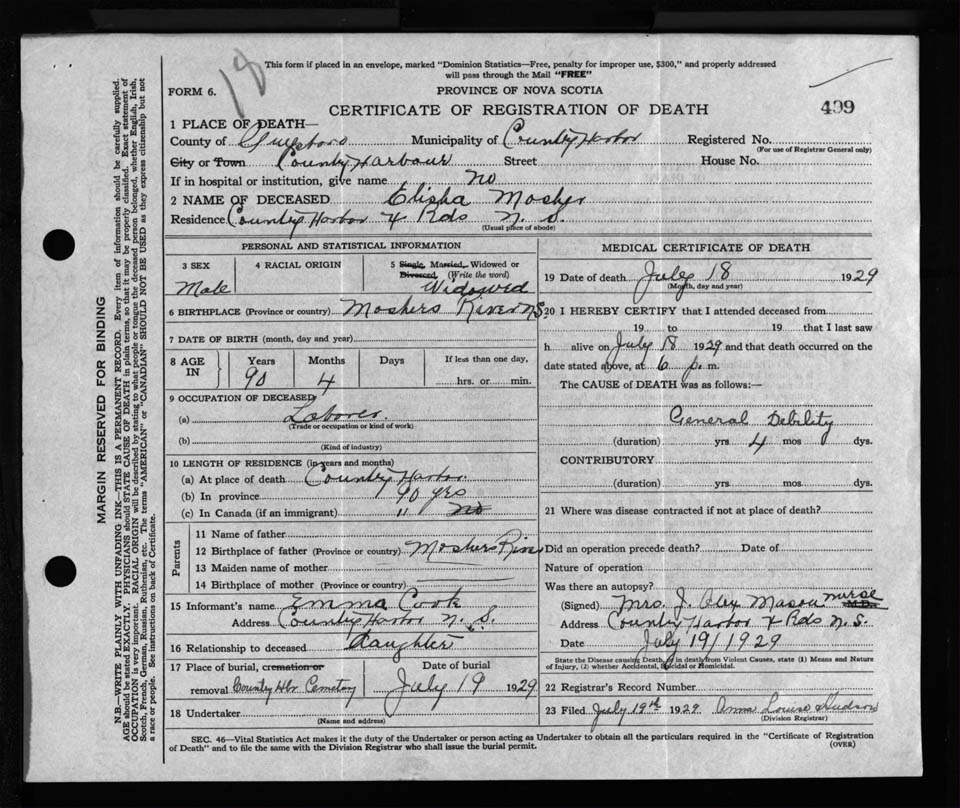 18
This form if placed in an envelope, marked "Dominion Statistics—Free, penalty for improper use, $300," and properly addressed
will pass through the Mail "FREE"
FORM 6.
PROVINCE OF NOVA SCOTIA
CERTIFICATE OF REGISTRATION OF DEATH
499
1 PLACE OF DEATH—
County of Guysboro Municipality of Country Harbor Registered No.
(For use of Registrar General only)
City or Town Country Harbour Street House No.
If in hospital or institution, give name no
2 NAME OF DECEASED Elisha Mosher
Residence Country Harbor X Rds N. S.
(Usual place of abode)
PERSONAL AND STATISTICAL INFORMATION
3 SEX
Male
4 RACIAL ORIGIN
5 Single, Married, Widowed or
Divorced (Write the word)
Widowed
6 BIRTHPLACE (Province or country) Moshers River N.S
7 DATE OF BIRTH (month, day and year)
8 AGE IN
Years Months Days If less than one day,
90 4 hrs. or min.
9 OCCUPATION OF DECEASED
(a) Laborer
(Trade or occupation or kind of work)
(b)
(Kind of industry)
10 LENGTH OF RESIDENCE (in years and months)
(a) At place of death Country Harbor
(b) In province 90 yrs
(c) In Canada (if an immigrant) " no
Parents
11 Name of father
12 Birthplace of father (Province or country) Moshers River
13 Maiden name of mother
14 Birthplace of mother (Province or country)
15 Informant's name Emma Cook
Address Country Harbor N. S.
16 Relationship to deceased Daughter
17 Place of burial, cremation or
removal Country Hbr Cemetery
Date of burial
July 19 1929
18 Undertaker
(Name and address)
MEDICAL CERTIFICATE OF DEATH
19 Date of death July 18 1929
(Month, day and year)
20 I HEREBY CERTIFY that I attended deceased from
19 to 19 that I last saw
h alive on July 18 1929 and that death occurred on the
date stated above, at 6 p.m.
The CAUSE of DEATH was as follows:—
General Debility
(duration) yrs 4 mos dys.
CONTRIBUTORY
(duration) yrs mos dys.
21 Where was disease contracted if not at place of death?
Did an operation precede death? Date of
Nature of operation
Was there an autopsy?
(Signed) Mrs. J. Alex Mason nurse M.D.
Address Country Harbor X Rds N. S.
Date July 19/1929
State the Disease causing Death, or in death from Violent Causes, state (1) Means and Nature
of Injury, (2) whether Accidental, Suicidal or Homicidal.
22 Registrar's Record Number
23 Filed July 19th 1929 Anna Louise Hudson
(Division Registrar)
SEC. 46—Vital Statistics Act makes it the duty of the Undertaker or person acting as Undertaker to obtain all the particulars required in the "Certificate of Registration
of Death" and to file the same with the Division Registrar who shall issue the burial permit.
(OVER)
MARGIN RESERVED FOR BINDING
N.B.—WRITE PLAINLY WITH UNFADING INK—THIS IS A PERMANENT RECORD. Every item of information should be carefully supplied.
AGE should be stated EXACTLY. PHYSICIANS should STATE CAUSE OF DEATH in plain terms, so that it may be properly classified. Exact statement of
OCCUPATION is very important. RACIAL ORIGIN will be described by stating to what people or tongue the deceased person belonged, whether English, Irish,
Scotch, French, German, Russian, Ruthenian, etc. The terms "AMERICAN" or "CANADIAN" SHOULD NOT BE USED as they express citizenship but not
a race or people. See instructions on back of Certificate.